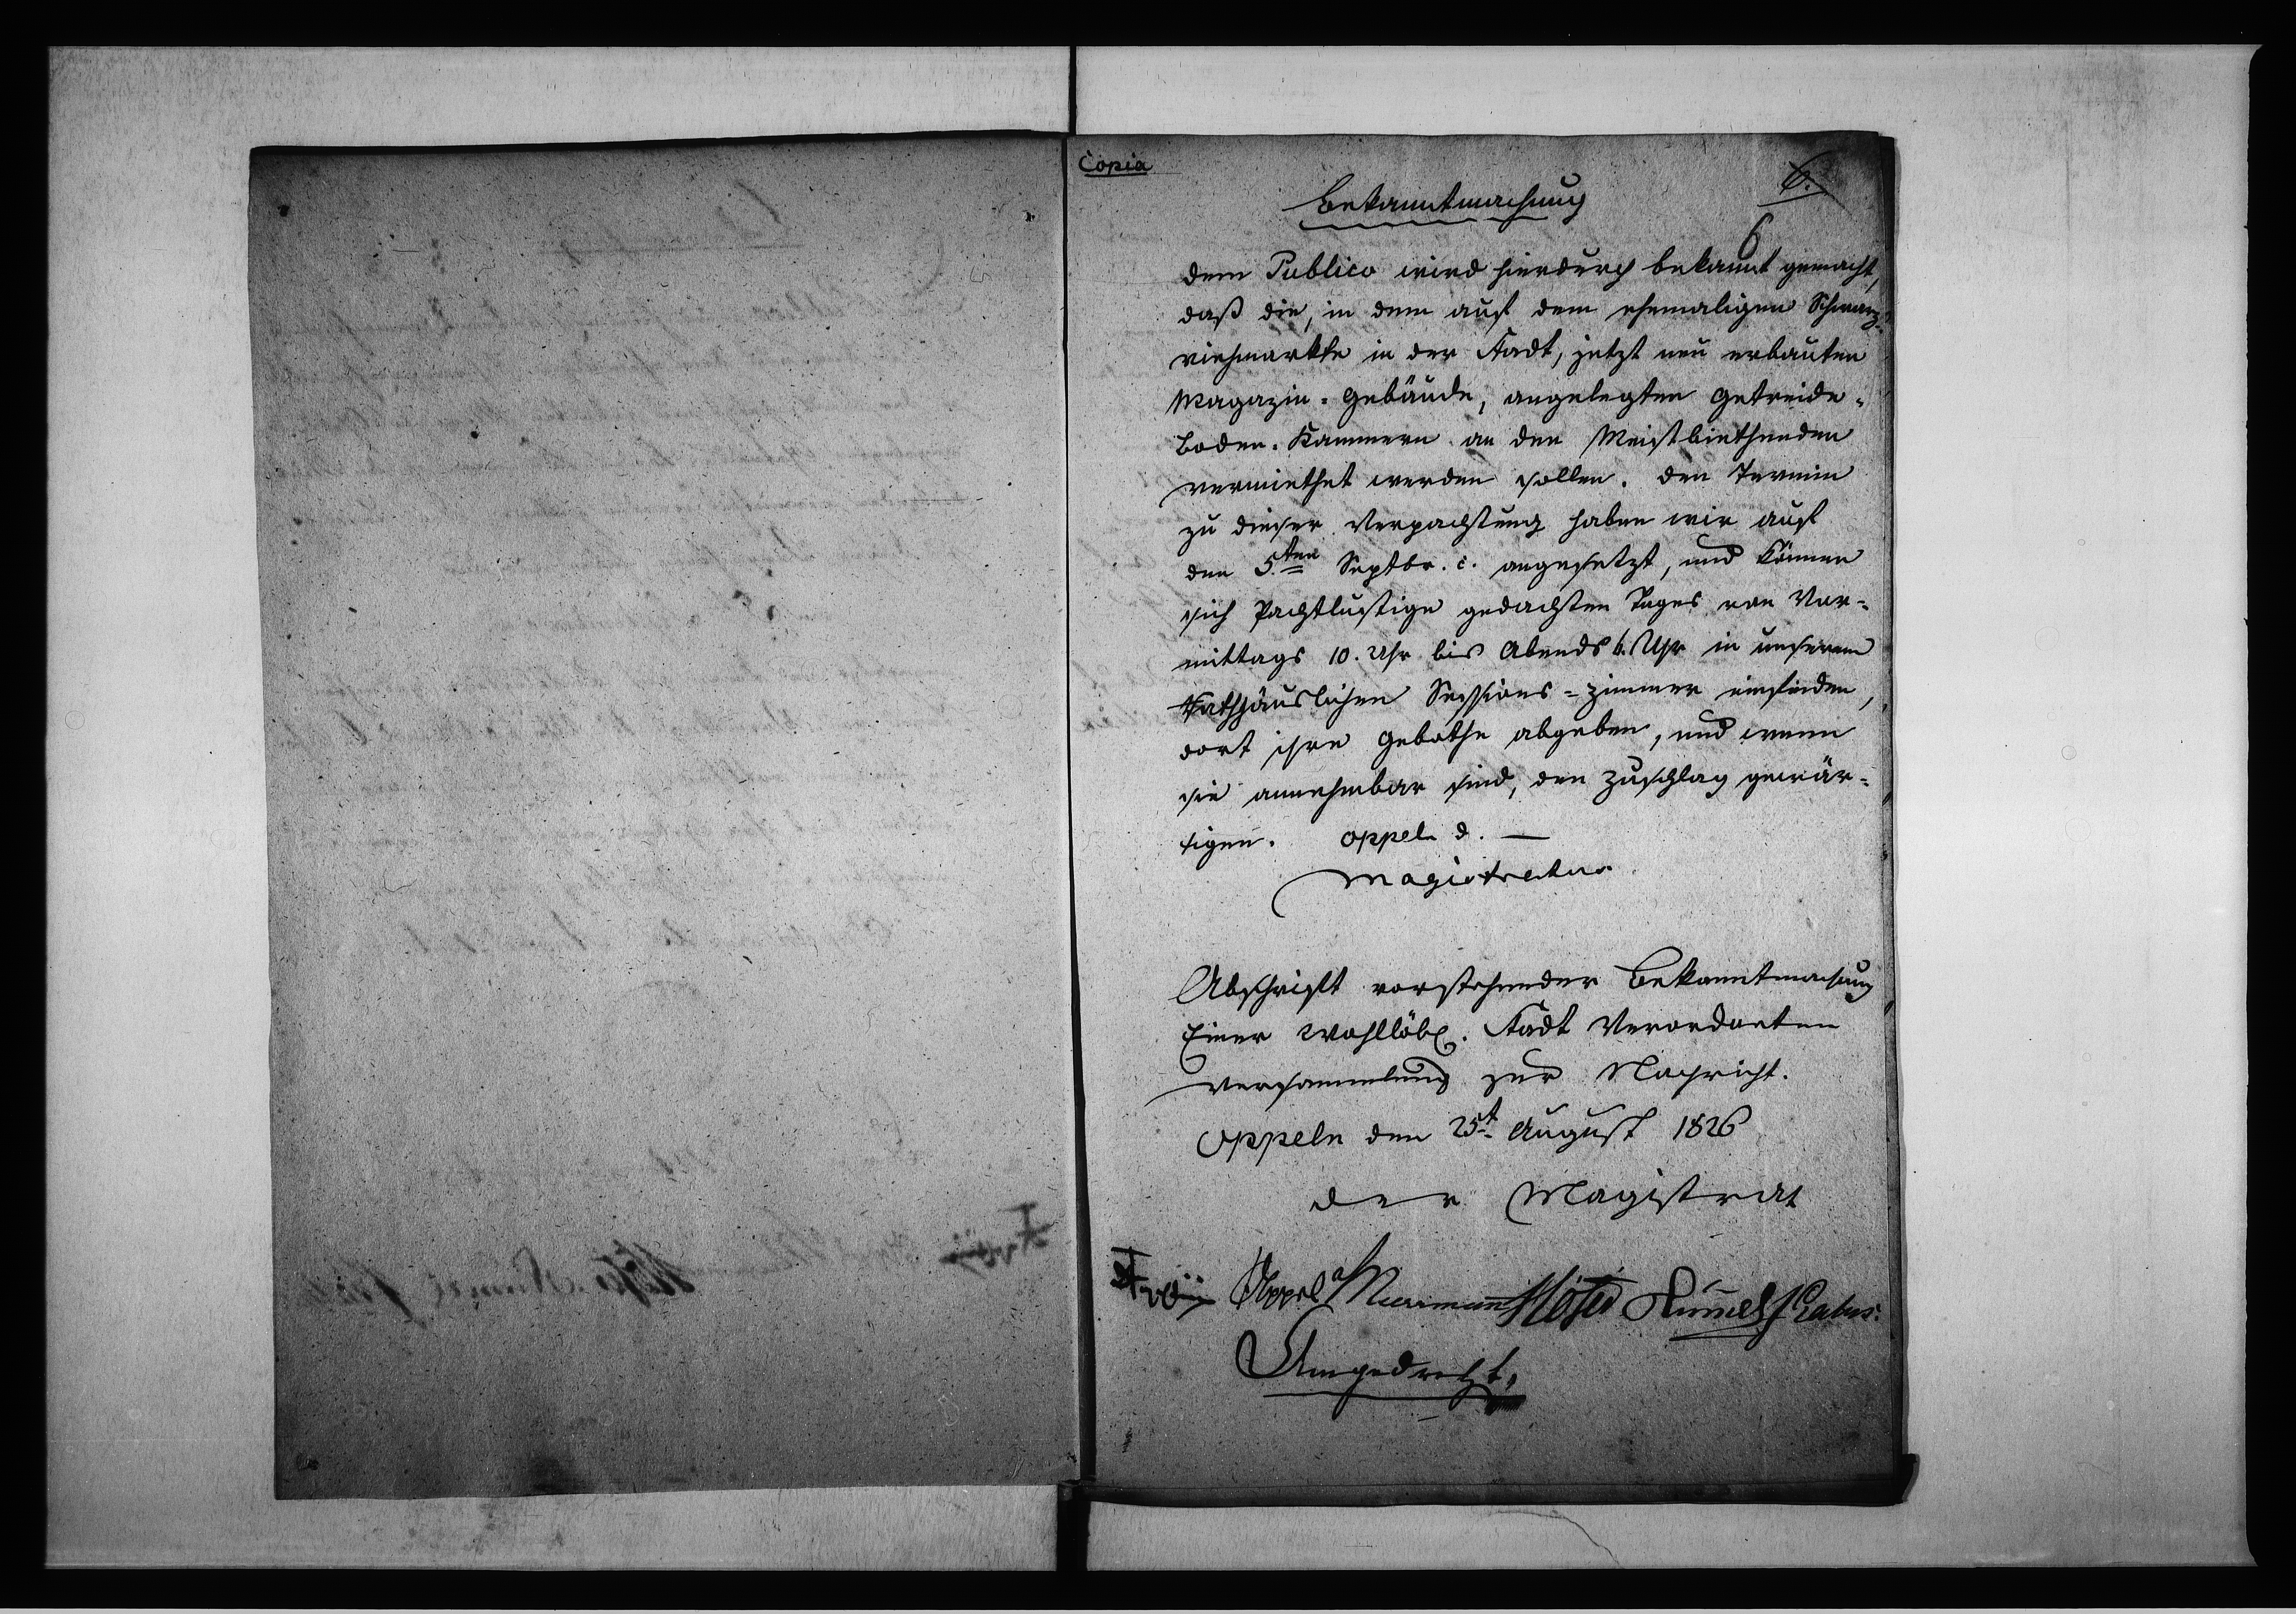 Copia
6.
Bekanntmachung
6
dem Publico wird hierdurch bekannt gemacht,
daß die, in dem auf dem ehemaligen Schwarz-
viehmarkte in der Stadt, jetzt neu erbauten
Magazin-Gebäude, angelegten Getreide-
Boden-Kammern an den Meistbiethenden
vermiethet werden sollen. Den Termin
zu dieser Verpachtung haben wir auf
den 5.ten Septbr. c. angesetzt, und können
sich Pachtlustige gedachten Tages von Vor-
mittags 10. Uhr bis Abends 6. Uhr in unserem
Rathhäuslichen Sessions-Zimmer einfinden,
dort ihre Gebothe abgeben, und wenn
sie annehmbar sind, den Zuschlag gewär-
tigen. Oppeln d. —
Magistratus
Abschrift vorstehender Bekanntmachung
Einer Wohllöbl. Stadt Verordneten
Versammlung zur Nachricht.
Oppeln den 25t August 1826
Der Magistrat